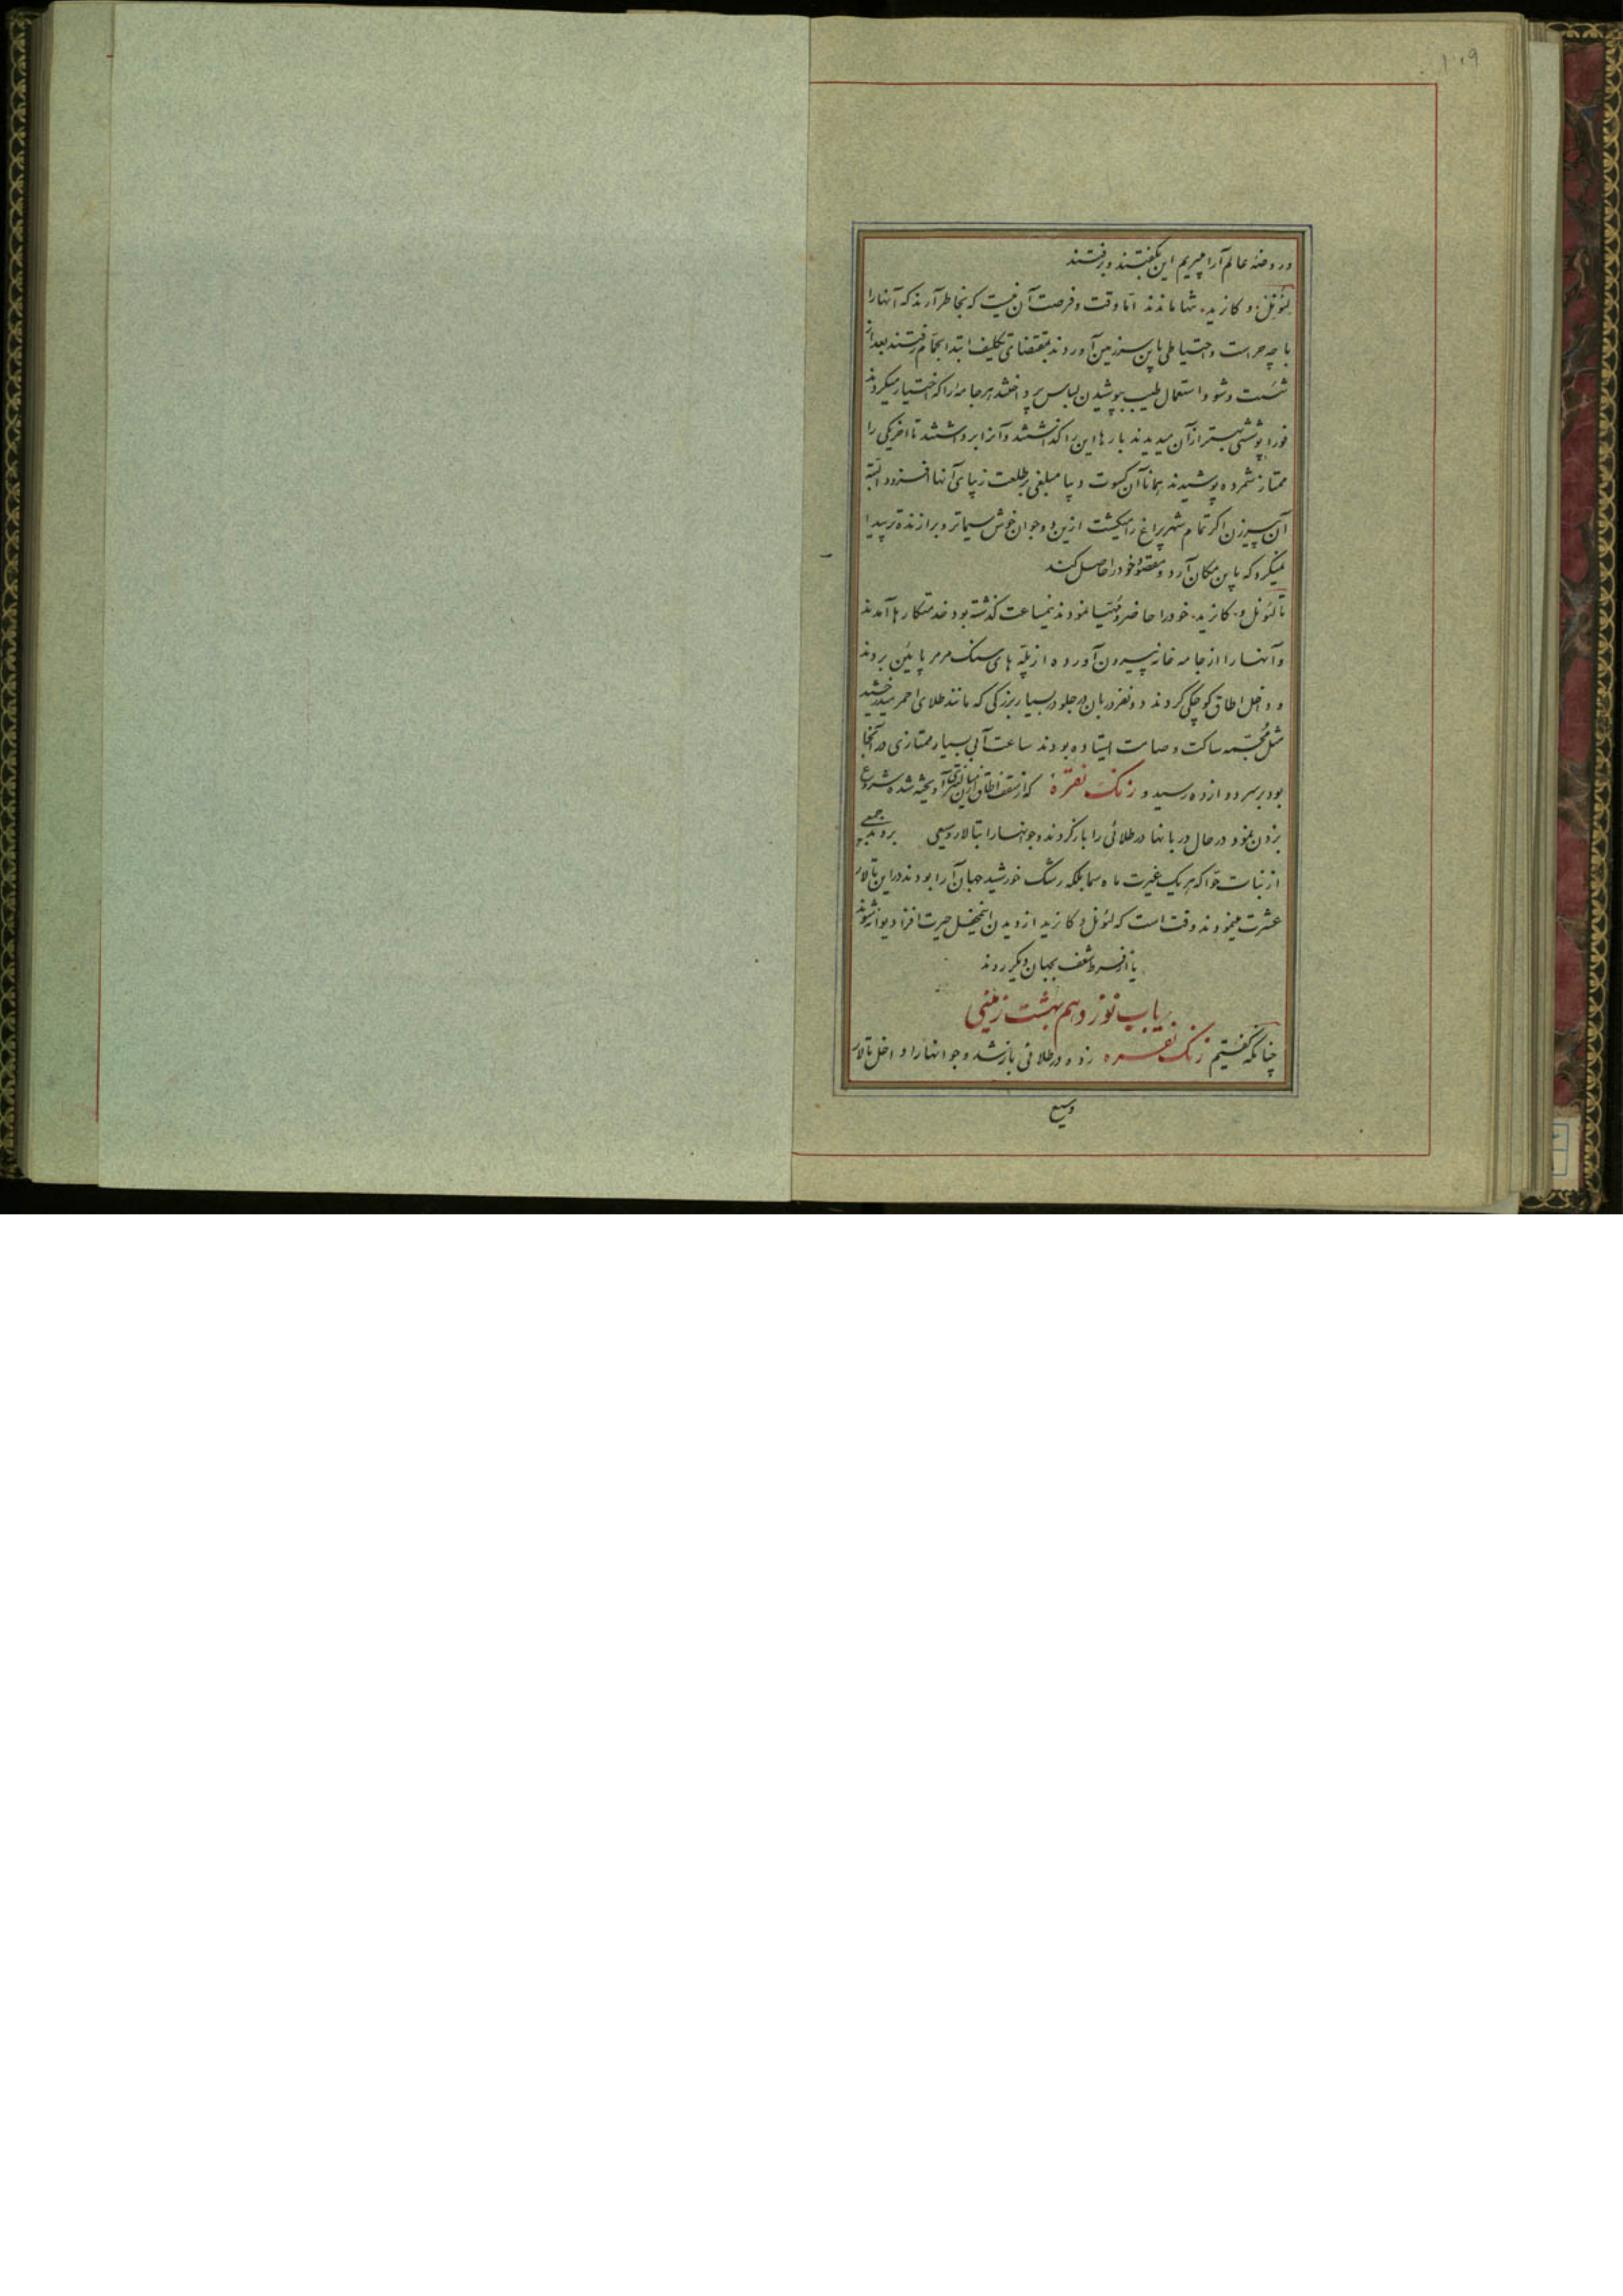 ۱۰۹
در روضهٔ عالم آرا میبریم این بگفتند و رفتند
لئونل و کازید تنها ماندند اما وقت و فرصت آن نیست که بخاطر آرند که آنها را
با چه حراست و احتیاطی باین سرزمین آوردند بمقتضای تکلیف ابتدا بحمام رفتند بعد از
شست و شو و استعمال طیب بپوشیدن لباس پرداختند هر جامه را که اختیار میکردند
فورا پوششی بهتر از آن میدیدند بارها این را گذاشتند و آنرا برداشتند تا اخر یکی را
ممتاز شمرده پوشیدند همانا آن کسوت دیبا مبلغی بر طلعت زیبای آنها افزود البته
آن پیرزن اگر تمام شهر پراغ را میگشت ازین دو جوان خوش سیماتر و برازنده تر پیدا
نمیکرد که باین مکان آرد و مقصود خود را حاصل کند
تا لئونل و کازید خود را حاضر و مهیا نمودند نیمساعت گذشته بود خدمتکارها آمدند
و آنها را از جامه خانه بیرون آورده از پله های سنک مرمر پائین بردند
و داخل اطاق کوچکی کردند دو نفر دربان در جلو در بسیار بزرکی که مانند طلای احمر میدرخشید
مثل مجسمه ساکت و صامت ایستاده بودند ساعت آبی بسیار ممتازی در آنجا
بود بر سر دوازده رسید و زنک نقره که از سقف اطاق آویخته شده شروع
بزدن نمود در حال دربانها در طلائی را باز کردند و جوانها را بتالار وسیعی بردند جمعی
از بنات حوا که هر یک غیرت ماه سما بلکه رشک خورشید جهان آرا بودند در این تالار
عشرت مینمودند وقت است که لئونل و کازید از دیدن این محفل حیرت افزا دیوانه شوند
یا از فرط شعف بجهان دیگر روند
باب نوزدهم بهشت زمینی
چنانکه گفتیم زنک نقره زده در طلائی باز شد و جوانها را داخل تالار
وسیع